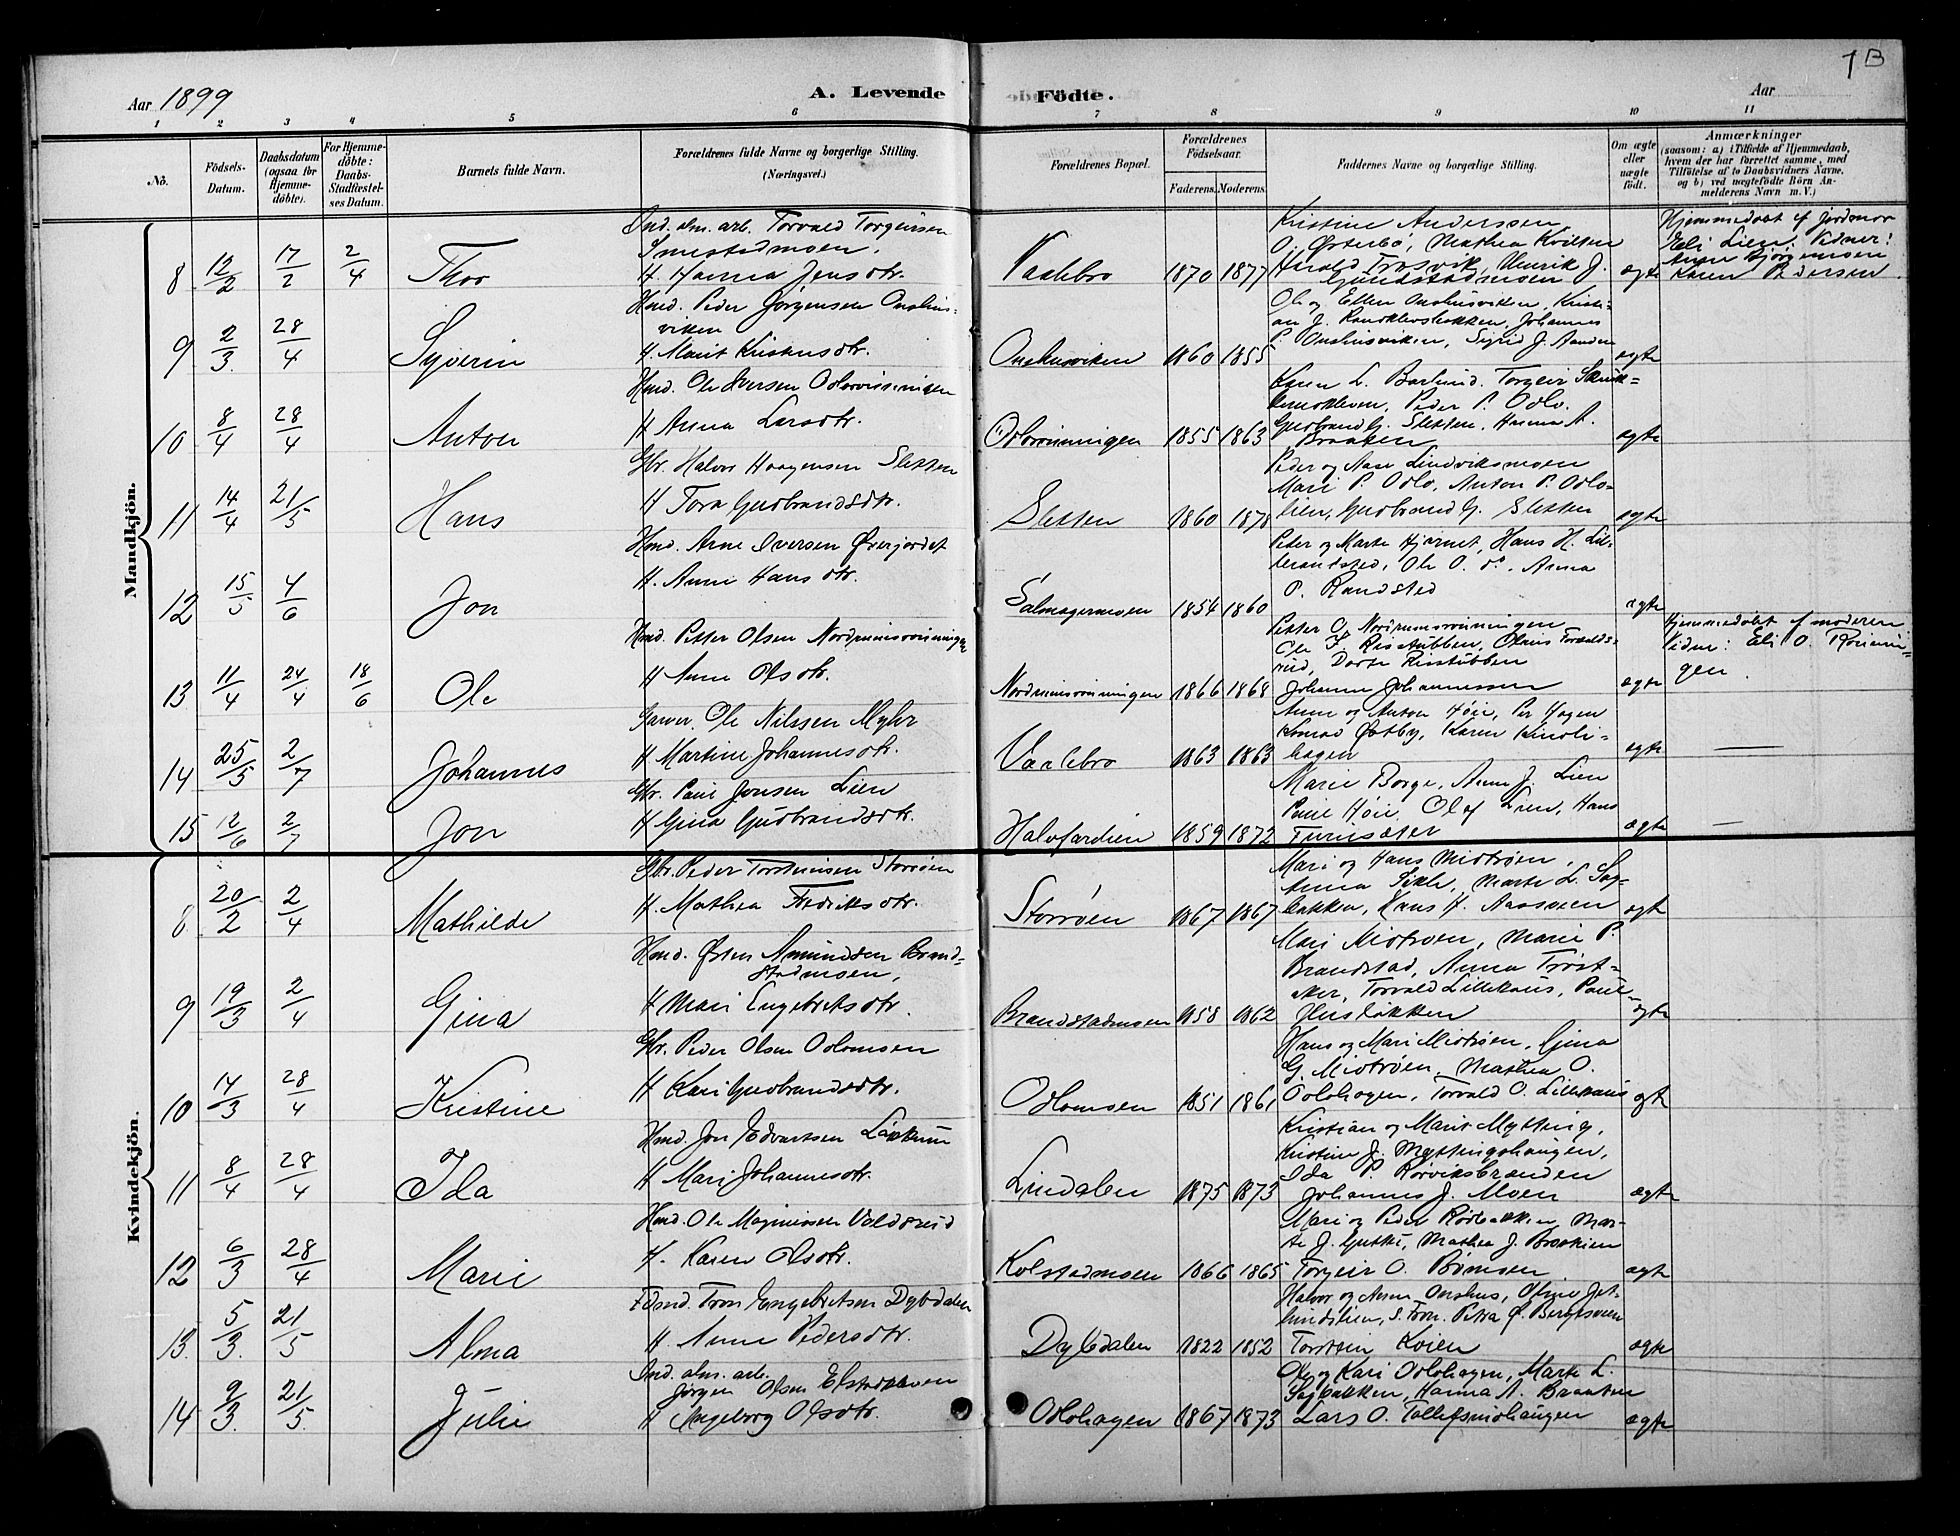 1B
Aar 1899
A. Levende Födte.
Aar
1 2 3 4 5 6 7 8 9 10 11
No.
Födsels-Datum.
Daabsdatum (ogsaa for Hjemme-döbte).
For Hjemme-döbte: Daabs-Stadfæstel-ses Datum.
Barnets fulde Navn.
Forældrenes fulde Navne og borgerlige Stilling. (Næringsvei.)
Forældrenes Bopæl.
Forældrenes Födselsaar.
Faderens. Moderens.
Faddernes Navne og borgerlige Stilling.
Om ægte eller uægte födt.
Anmærkninger
(saasom: a) i Tilfælde af Hjemmedaab, hvem der har forrettet samme, med Tilföielse af to Daabsvidners Navne, og b) ved uægtefödte Börn An-melderens Navn m. V.)
Mandkjön.
8 12/2 17/2 2/4 Thor
Ind. alm. arb. Torvald Torgersen
Smestadmoen,
H. Hanna Jensdtr.
Vaalebro 1870 1877
Kristine Anderssen
O. Østerbø, Mathea Kvilten
Harald Trosvik, Henrik J.
Gunstadmoen
ægte
Hjemmedøbt af jordmor
Eli Lien. Vidner:
Karen Pedersen
9 2/3 28/4 Syverin
Hmd. Peder Jørgensen Onshus-
viken
H. Marit Kristensdtr.
Onshusviken 1860 1855
Ole og Ellen Onshusviken, Kristi-
an J. Randklevbakken, Johannes
P. Onshusviken, Sigrid J. Sanden
ægte
10 8/4 28/4 Anton
Hmd. Ole Iversen Odlovinningen
H Anna Larsdtr.
Odlovinningen 1855 1863
Karen L. Barlund. Torgeir Skrik-
Peder P. Odlo.
Gudbrand G. Sletten, Hanna A.
Braaten
ægte
11 14/4 21/5 Hans
Gbr. Halvor Haagensen Sletten
H Tora Gudbrandsdtr.
Sletten 1860 1878
Peder og Aase Lindviksmoen
Mari P. Odlo, Anton P. Odlo-
lien, Gudbrand G. Sletten
ægte
12 15/5 4/6 Jon
Hmd. Arne Iversen Øverjordet
H. Anne Hansdtr.
Salmagermoen 1854 1860
Peder og Marte Hjarnet, Hans H. Lil-
lerandsted, Ole O. do. Anna
O. Randsted
ægte
13 11/4 24/4 18/6 Ole
Hmd. Petter Olsen Nordrumsvinningen
H Anne Olsdtr.
Nordrumsvinningen 1866 1868
Petter O. Nordrumsvinningen
Ole J. Risstubben, Olaus Toralds-
rud, Dorte Risstubben
Johanne Johannessen
ægte
Hjemmedøbt af moderen
Vidne: Eli O. Rønnin-
gen.
14 25/5 2/7 Johannes
Garver Ole Nilssen Myhr
H Martine Johannesdtr.
Vaalebro 1863 1863
Anne og Anton Høie, Per Hagen
Konrad Østby, Karen Kindli-
hagen
ægte —
15 12/6 2/7 Jon
Gbr. Paul Jonsen Lien
H Gina Gudbrandsdtr.
Halvfardlien 1859 1872
Marie Borge, Anne J. Lien
Pauline Høie, Olaf Lien, Hans
ægte —
Kvindekjön.
8 20/2 2/4 Mathilde
Gbr. Peder Torstensen Storrøen
H. Mathea Fredriksdtr.
Storrøen 1867 1867
Mari og Hans Midtrøen,
Anna Sikle, Marte L. Sag-
bakken, Hans H. Aasmoen
ægte
9 19/3 2/4 Gina
Hmd. Østen Amundsen Brand-
stadmoen,
H Mari Engebretsdtr.
Brandstadmoen 1858 1862
Mari Midtrøen, Marie P.
Brandstad, Anna Trøst-
aker, Torvald Lillehaus, Paul-
Husløkken
ægte
10 14/3 28/4 Kristine
Gbr. Peder Olsen Odlomoen
H Kari Gudbrandsdtr.
Odlomoen 1851 1861
Hans og Mari Midtrøen, Gina
G. Midtrøen, Mathea O.
Odlohagen, Torvald O. Lillehaus
ægte
11 8/4 28/4 Ida
Hmd. Jon Edvartsen Løkkum
H Mari Johannesdtr.
Lindalen 1875 1873
Kristian og Marit Mytting,
Kristine J. Myttinghaugen,
Ida P. Rørviksbraaden
Johannes J. Moen
ægte
12 6/3 28/4 Marie
Hmd. Ole Magnussen Voldsrud
H. Karen Olsdtr.
Kolstadmoen 1866 1865
Mari og Peder Rødbakken, Mar-
te J. Gutte, Mathea J. Brækken
Torgeir O. Bømoen
ægte
13 5/3 21/5 Alma
Fdsmd. Tron Engebretsen Dybdalen
H. Anne Pedersdtr.
Dybdalen 1822 1852
Halvor og Anne Onshus, Oline Jet-
lundslien, S. Tron. Petra O. Bergesveen
Torstein Kvien
ægte
14 9/3 21/5 Julie
Ind. alm. arb.
Jørgen Olsen Elstadkleven
H Ingeborg Olsdtr.
Odlohagen 1867 1873
Ole og Kari Odlohagen, Marte L.
Sagbakken, Hanna A. Braaten
Lars O. Tollefsrudhaugen
ægte